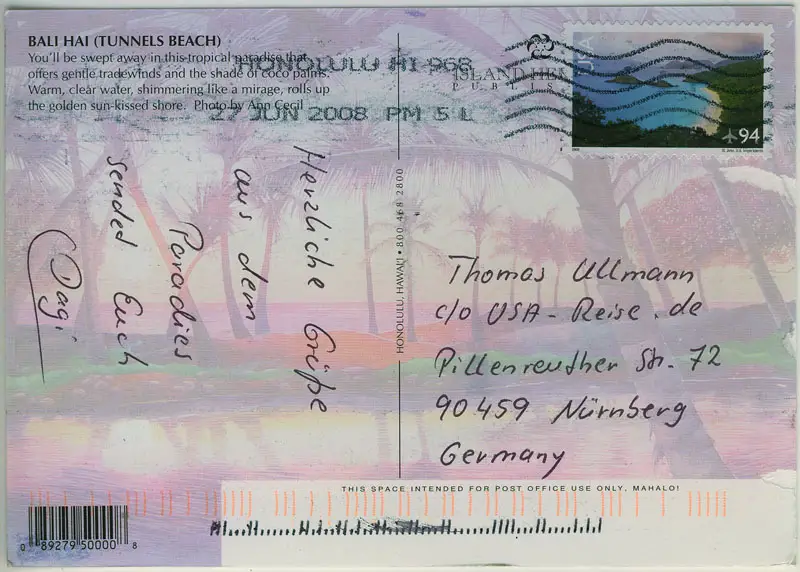 BALI HAI (TUNNELS BEACH)
You'll be swept away in this tropical paradise that
offers gentle tradewinds and the shade of coco palms.
Warm, clear water, shimmering like a mirage, rolls up
the golden sun-kissed shore. Photo by Ann Cecil
HONOLULU HI 968
27 JUN 2008 PM 5 L
ISLAND
USA
94
HONOLULU, HAWAI'I • 800 468 2800
Herzliche Grüße
aus dem
Paradies
sended Euch
Dagi
Thomas Ullmann
c/o USA-Reise.de
Pillenreuther Str. 72
90459 Nürnberg
Germany
THIS SPACE INTENDED FOR POST OFFICE USE ONLY, MAHALO!
0 89279 50000 8